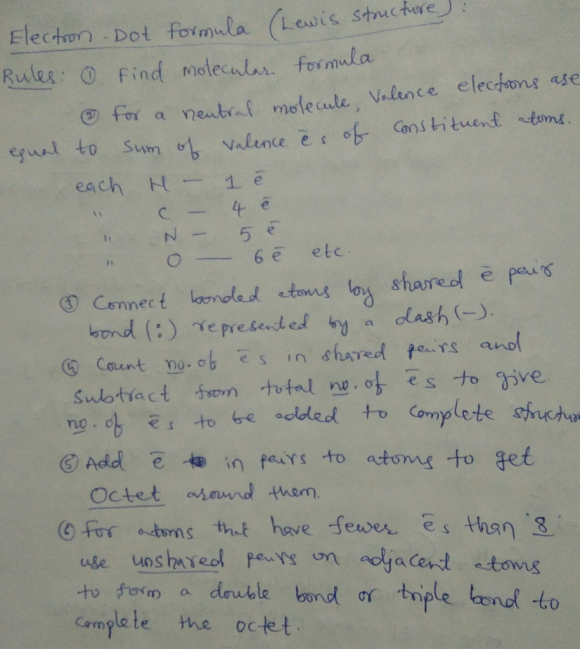 Electron-Dot Formula (Lewis structure):
Rules: ① Find molecular formula
② For a neutral molecule, Valence electrons are
equal to sum of valence ē s of constituent atoms.
each H — 1 ē
" C — 4 ē
" N — 5 ē
" O — 6 ē etc.
③ Connect bonded atoms by shared ē pair
bond (:) represented by a dash (-).
④ Count no. of ē s in shared pairs and
subtract from total no. of ē s to give
no. of ē s to be added to complete structure
⑤ Add ē in pairs to atoms to get
Octet around them.
⑥ For atoms that have fewer ē s than '8'
use unshared pairs on adjacent atoms
to form a double bond or triple bond to
Complete the octet.